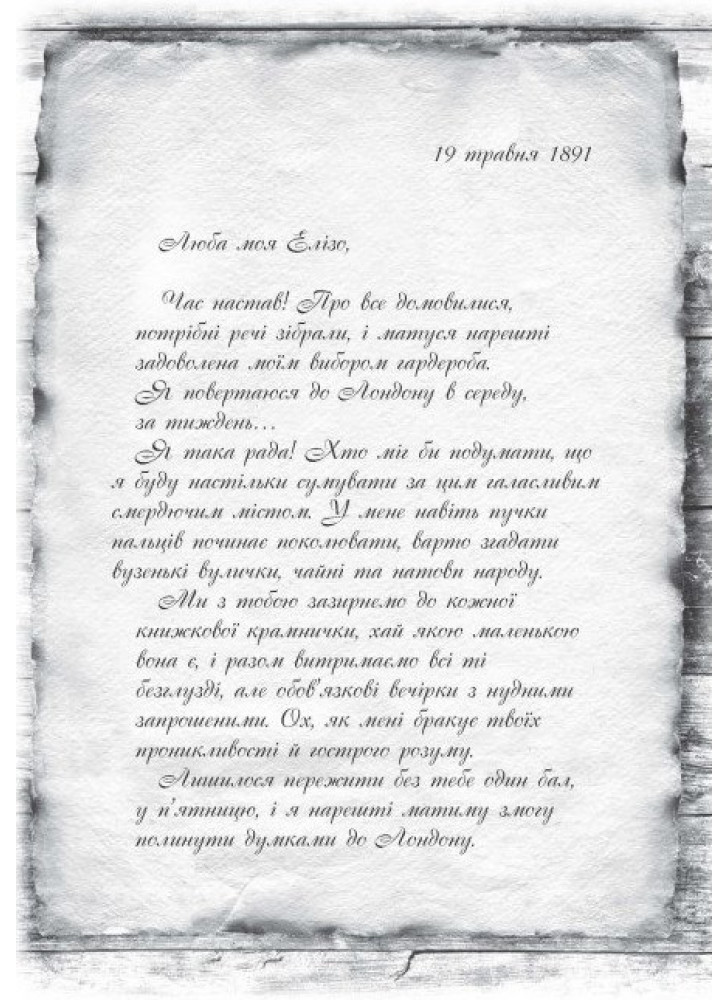 19 травня 1891
Люба моя Елізо,
Час настав! Про все домовилися,
потрібні речі зібрали, і матуся нарешті
задоволена моїм вибором гардероба.
Я повертаюся до Лондону в середу,
за тиждень…
Я така рада! Хто міг би подумати, що
я буду настільки сумувати за цим галасливим
смердючим містом. У мене навіть пучки
пальців починає поколювати, варто згадати
вузенькі вулички, чайні та натовп народу.
Ми з тобою зазирнемо до кожної
книжкової крамнички, хай якою маленькою
вона є, і разом витримаємо всі ті
безглузді, але обов’язкові вечірки з нудними
запрошеними. Ох, як мені бракує твоїх
проникливості й гострого розуму.
Лишилося пережити без тебе один бал,
у п’ятницю, і я нарешті матиму змогу
полинути думками до Лондону.